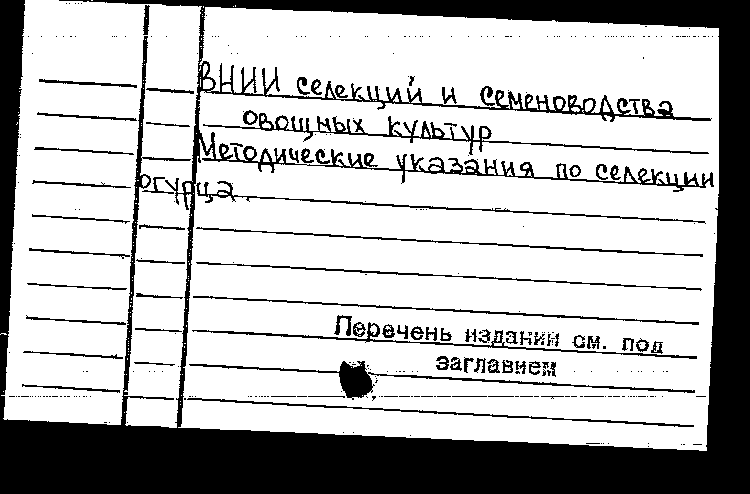 ВНИИ селекций и семеноводства
овощных культур
Методические указания по селекции
огурца.
Перечень изданий см. под
заглавием